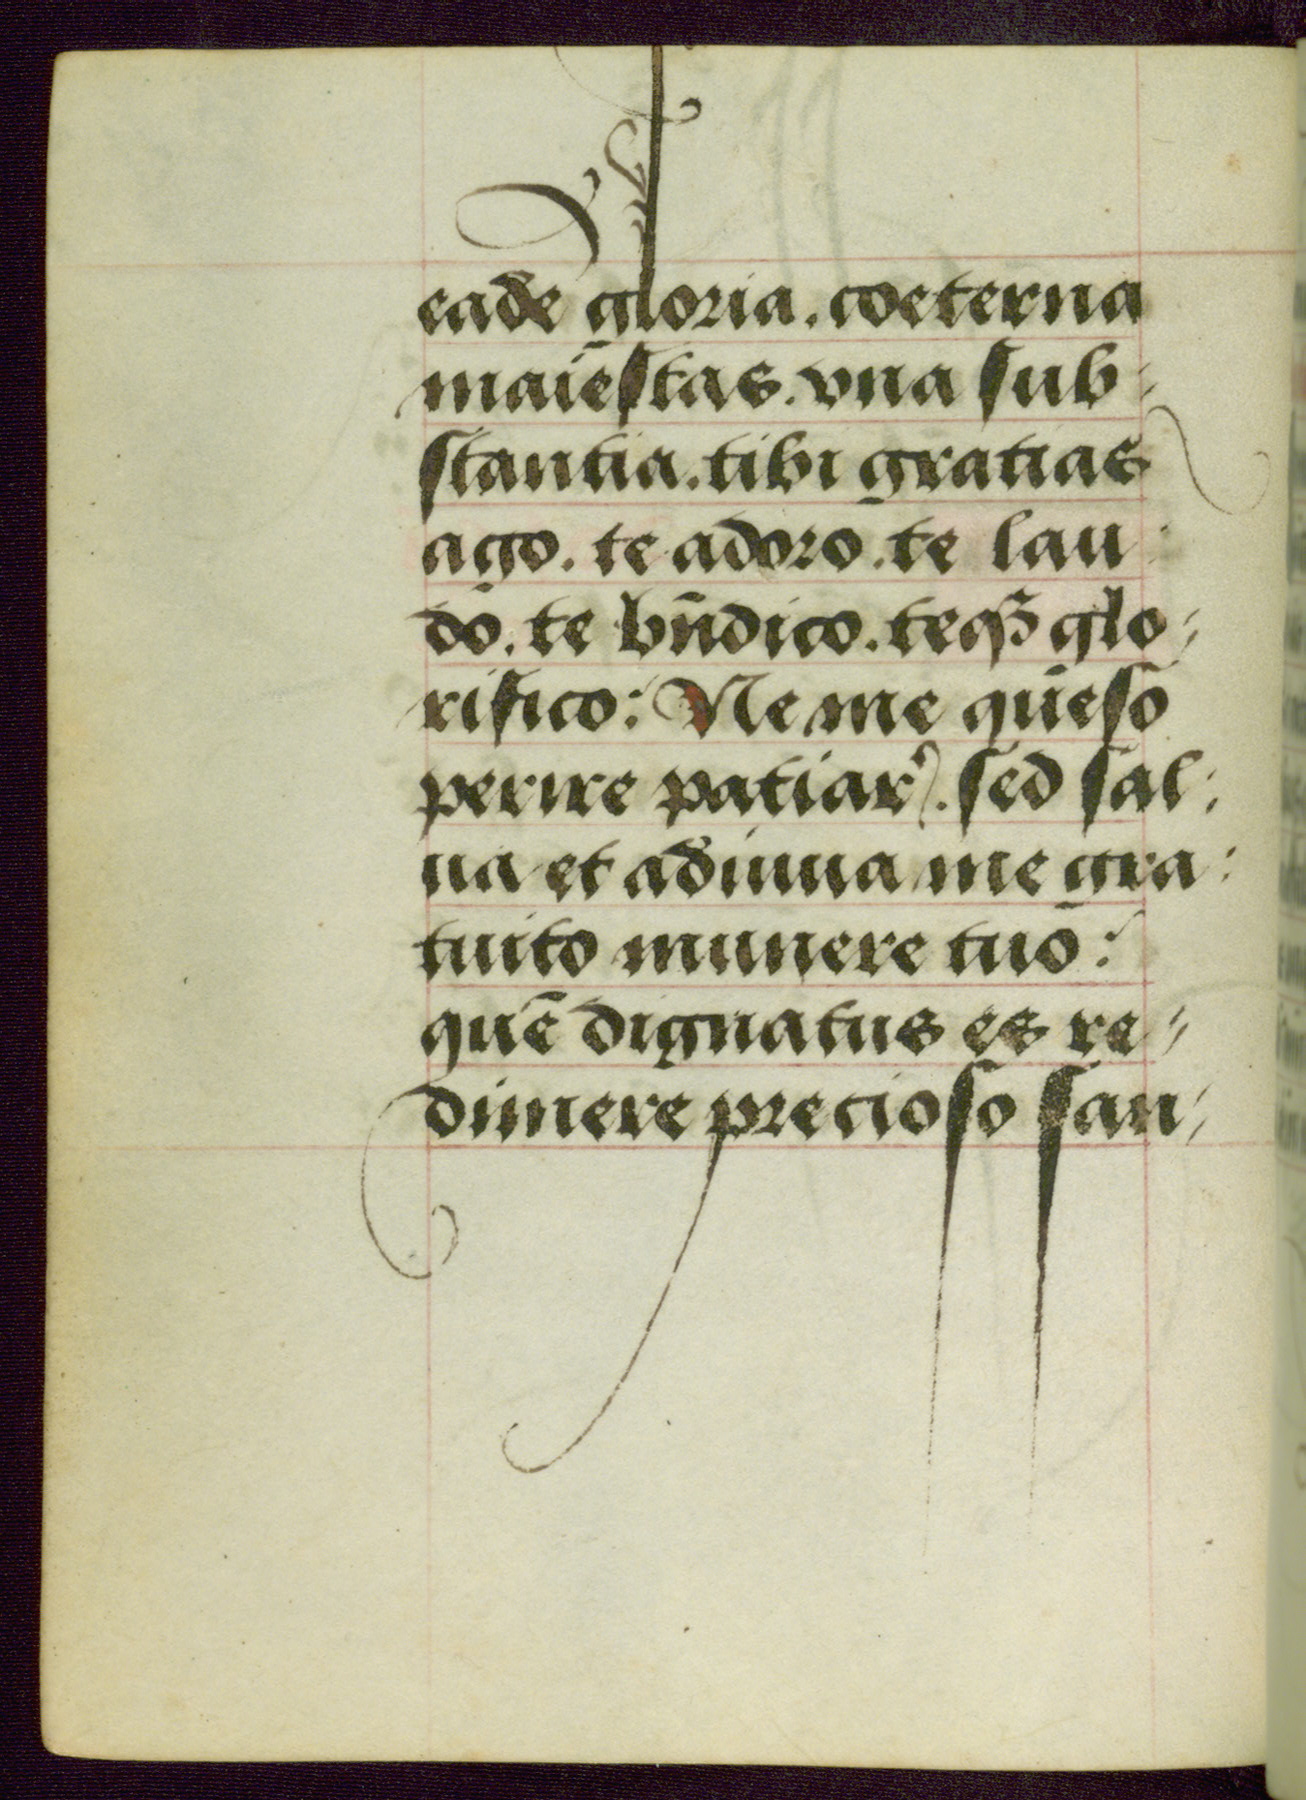 eadē gloria. coeterna
maiestas. vna sub⸗
stantia. tibi gratias
ago. te adoro. te lau
do. te bn̄dico. teqꝫ glo⸗
rifico: Ne me queso
perire patiar᷒. sed sal⸗
ua et adiuua me gra:
tuito munere tuo:
quē dignatus es re⸗
dimere precioso san⸗